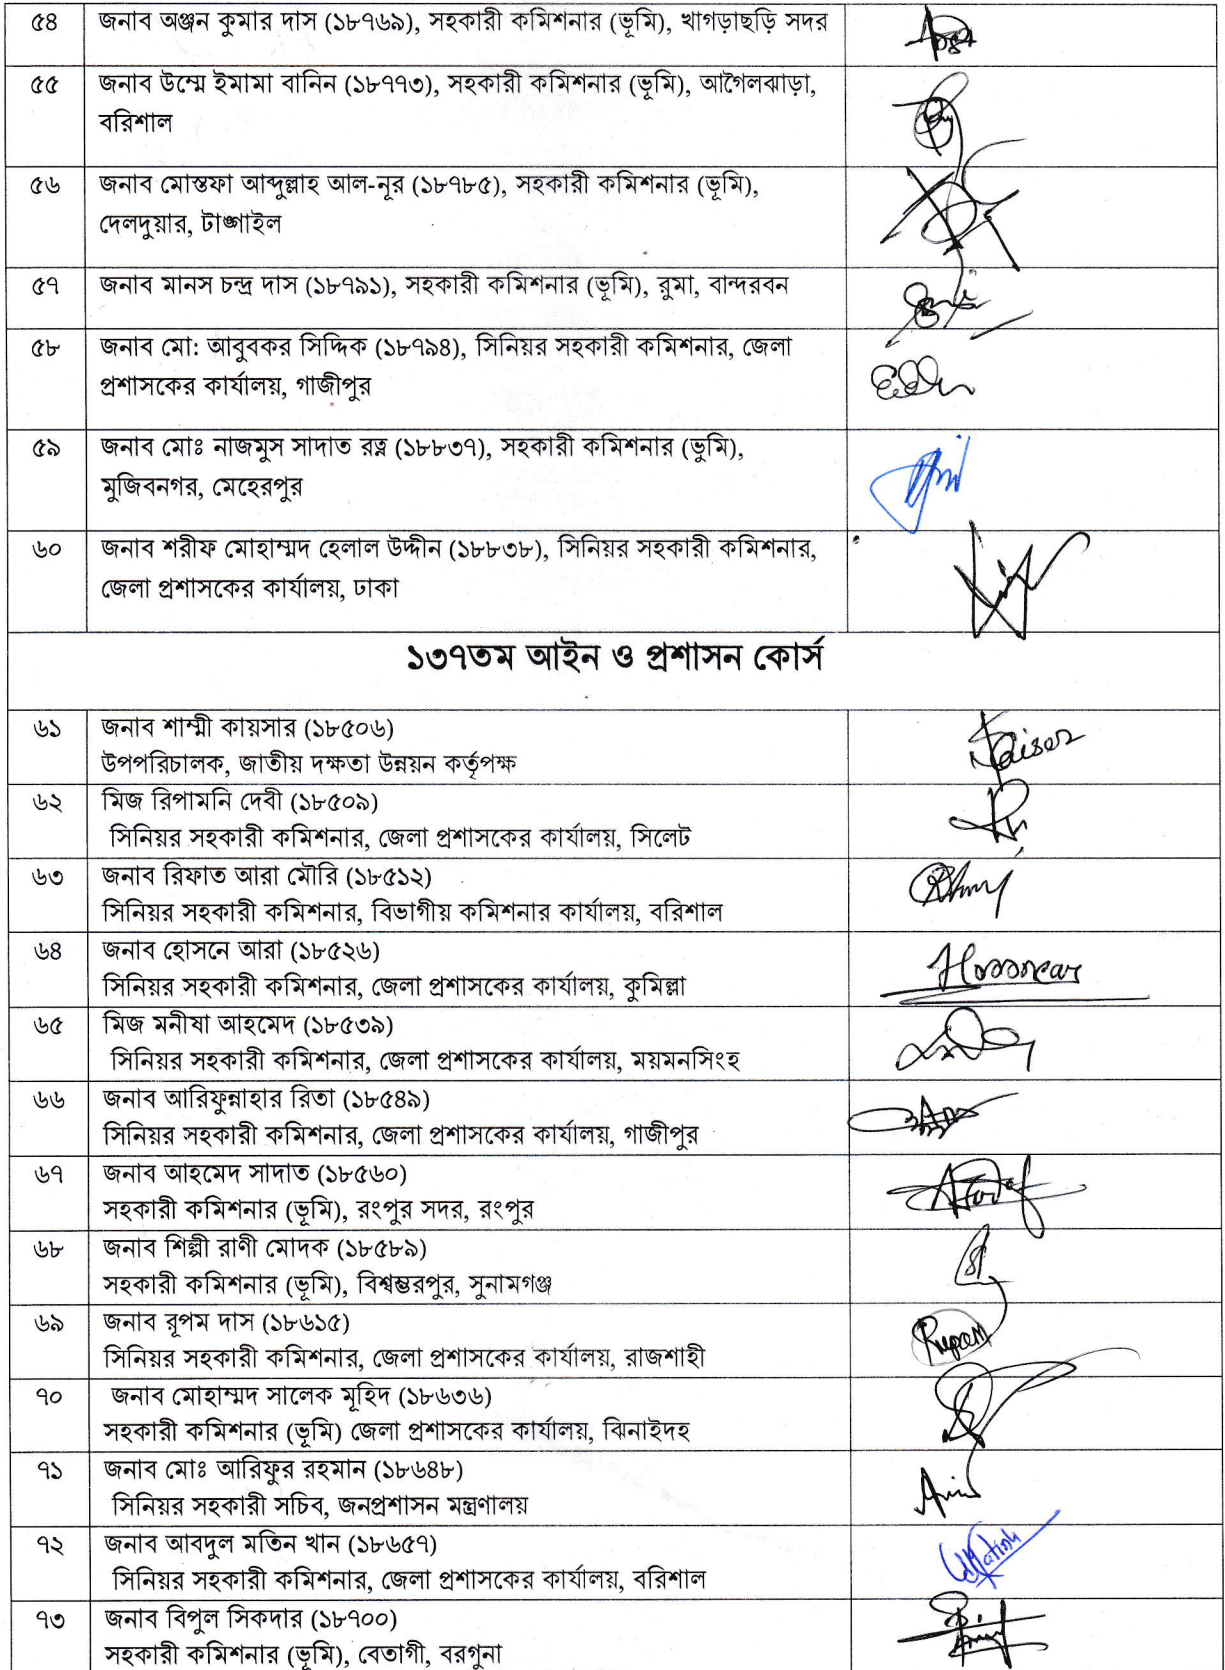 ৫৪ জনাব অঞ্জন কুমার দাস (১৮৭৬৯), সহকারী কমিশনার (ভূমি), খাগড়াছড়ি সদর
৫৫ জনাব উম্মে ইমামা বানিন (১৮৭৭৩), সহকারী কমিশনার (ভূমি), আগৈলঝাড়া,
বরিশাল
৫৬ জনাব মোস্তফা আব্দুল্লাহ আল-নূর (১৮৭৮৫), সহকারী কমিশনার (ভূমি),
দেলদুয়ার, টাঙ্গাইল
৫৭ জনাব মানস চন্দ্র দাস (১৮৭৯১), সহকারী কমিশনার (ভূমি), রুমা, বান্দরবন
৫৮ জনাব মো: আবুবকর সিদ্দিক (১৮৭৯৪), সিনিয়র সহকারী কমিশনার, জেলা
প্রশাসকের কার্যালয়, গাজীপুর
৫৯ জনাব মোঃ নাজমুস সাদাত রত্ন (১৮৮৩৭), সহকারী কমিশনার (ভুমি),
মুজিবনগর, মেহেরপুর
৬০ জনাব শরীফ মোহাম্মদ হেলাল উদ্দীন (১৮৮৩৮), সিনিয়র সহকারী কমিশনার,
জেলা প্রশাসকের কার্যালয়, ঢাকা
১৩৭তম আইন ও প্রশাসন কোর্স
৬১ জনাব শাম্মী কায়সার (১৮৫০৬)
উপপরিচালক, জাতীয় দক্ষতা উন্নয়ন কর্তৃপক্ষ
৬২ মিজ রিপামনি দেবী (১৮৫০৯)
সিনিয়র সহকারী কমিশনার, জেলা প্রশাসকের কার্যালয়, সিলেট
৬৩ জনাব রিফাত আরা মৌরি (১৮৫১২)
সিনিয়র সহকারী কমিশনার, বিভাগীয় কমিশনার কার্যালয়, বরিশাল
৬৪ জনাব হোসনে আরা (১৮৫২৬)
সিনিয়র সহকারী কমিশনার, জেলা প্রশাসকের কার্যালয়, কুমিল্লা
৬৫ মিজ মনীষা আহমেদ (১৮৫৩৯)
সিনিয়র সহকারী কমিশনার, জেলা প্রশাসকের কার্যালয়, ময়মনসিংহ
৬৬ জনাব আরিফুন্নাহার রিতা (১৮৫৪৯)
সিনিয়র সহকারী কমিশনার, জেলা প্রশাসকের কার্যালয়, গাজীপুর
৬৭ জনাব আহমেদ সাদাত (১৮৫৬০)
সহকারী কমিশনার (ভূমি), রংপুর সদর, রংপুর
৬৮ জনাব শিল্পী রাণী মোদক (১৮৫৮৯)
সহকারী কমিশনার (ভূমি), বিশ্বম্ভরপুর, সুনামগঞ্জ
৬৯ জনাব রূপম দাস (১৮৬১৫) Rupam
সিনিয়র সহকারী কমিশনার, জেলা প্রশাসকের কার্যালয়, রাজশাহী
৭০ জনাব মোহাম্মদ সালেক মূহিদ (১৮৬৩৬)
সহকারী কমিশনার (ভূমি) জেলা প্রশাসকের কার্যালয়, ঝিনাইদহ
৭১ জনাব মোঃ আরিফুর রহমান (১৮৬৪৮)
সিনিয়র সহকারী সচিব, জনপ্রশাসন মন্ত্রণালয়
৭২ জনাব আবদুল মতিন খান (১৮৬৫৭)
সিনিয়র সহকারী কমিশনার, জেলা প্রশাসকের কার্যালয়, বরিশাল
৭৩ জনাব বিপুল সিকদার (১৮৭০০)
সহকারী কমিশনার (ভূমি), বেতাগী, বরগুনা